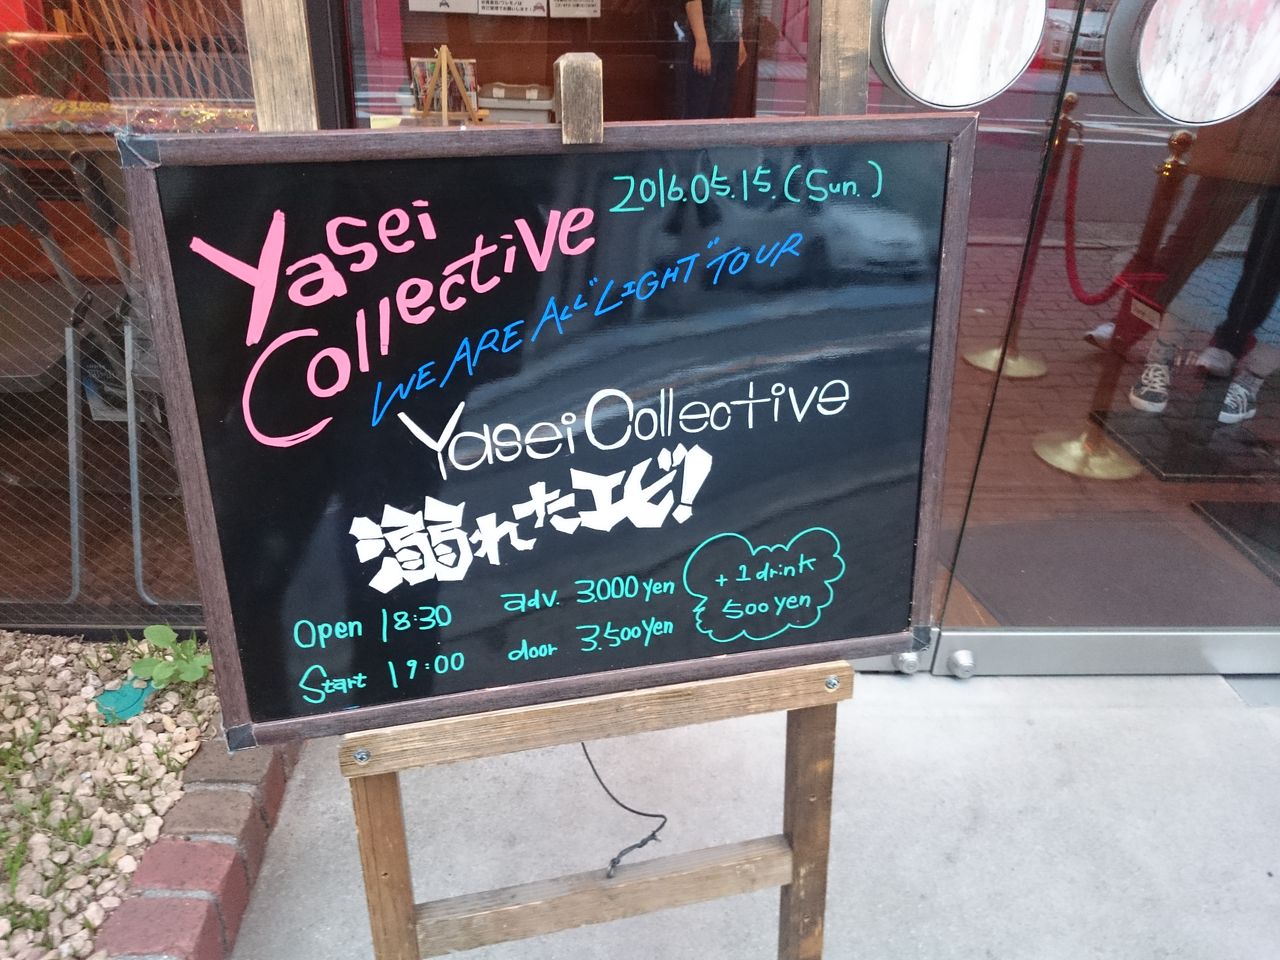 2016.05.15.(Sun.)
Yasei
Collective
WE ARE ALL "LIGHT" TOUR
Yasei Collective
溺れたエビ!
Open 18:30 adv. 3.000 yen
Start 19:00 door 3.500 yen
+1 drink
500 yen